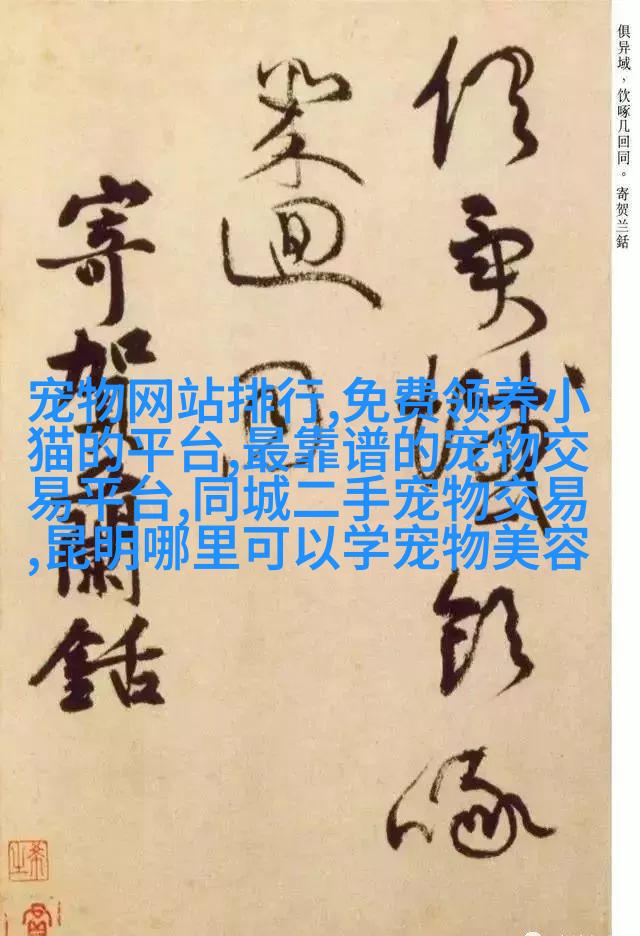 俱异域，饮啄几回同。寄贺兰銛
俱異域飲啄
幾迴同
寄賀蘭銛
宠物网站排行,免费领养小
猫的平台,最靠谱的宠物交
易平台,同城二手宠物交易
,昆明哪里可以学宠物美容